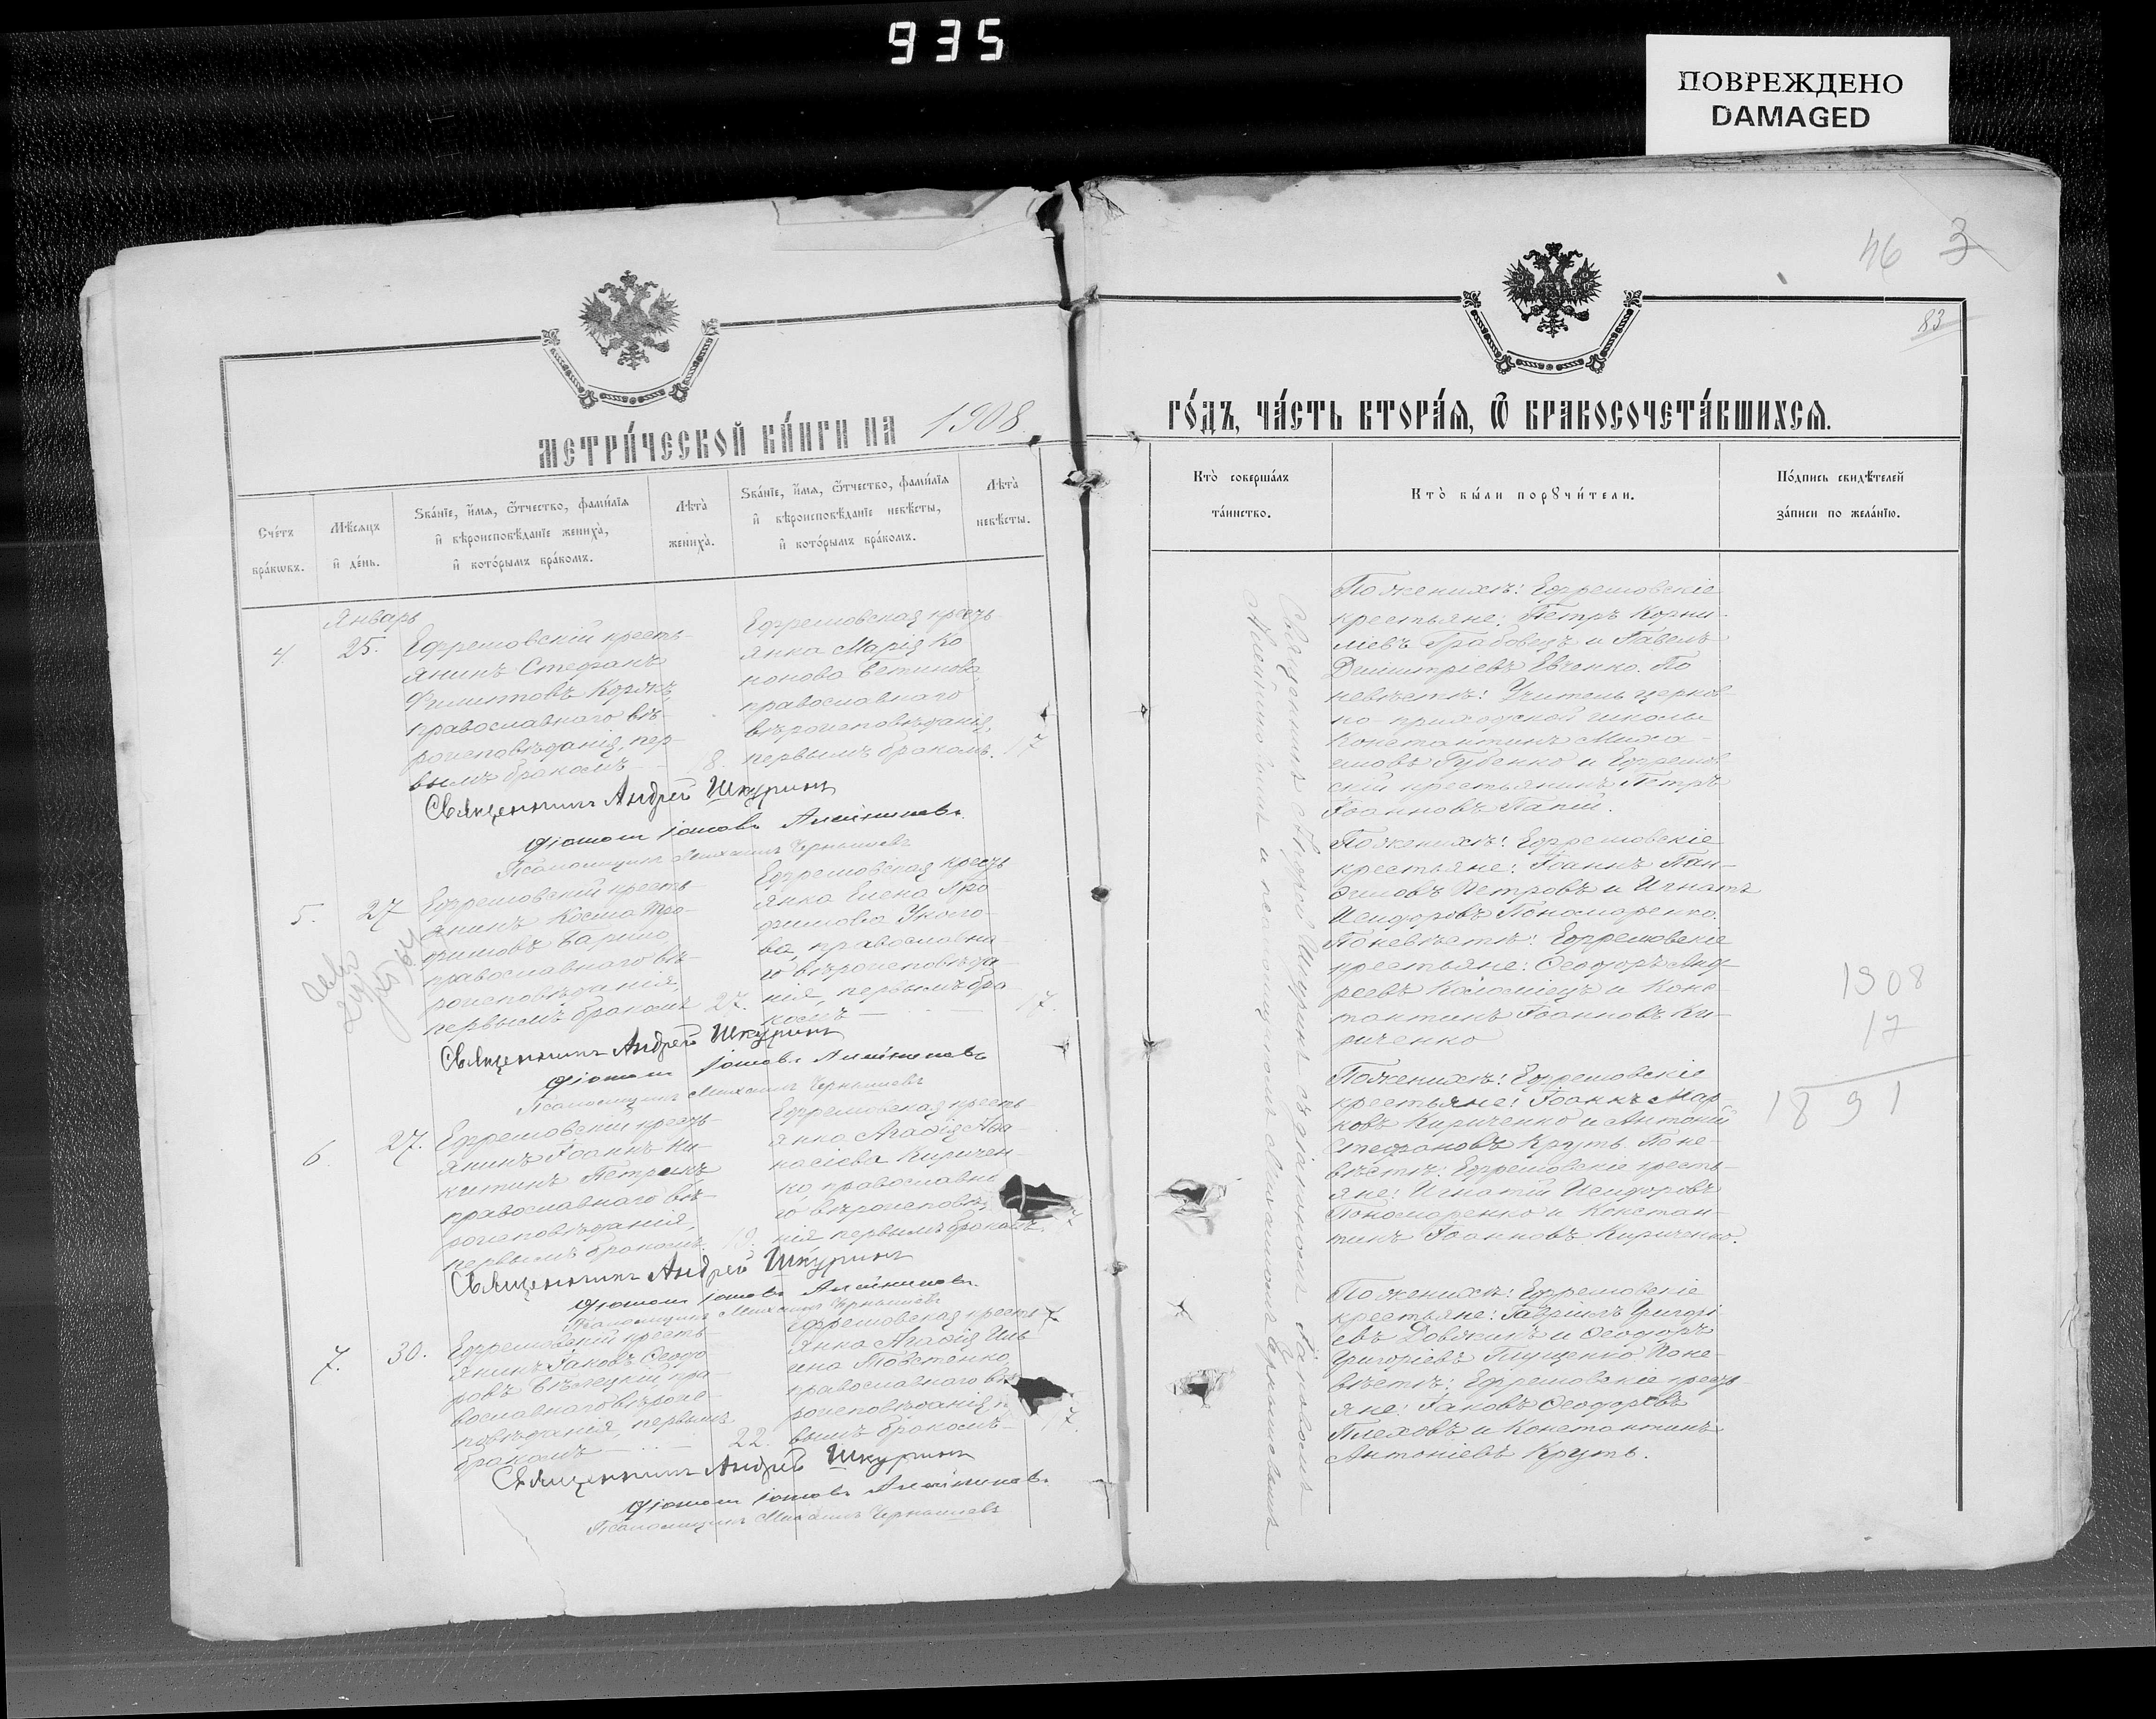 935
ПОВРЕЖДЕНО
DAMAGED
46 3
83
МЕТРИ́ЧЕСКОЙ КНИ́ГИ НА 1908
ГО́ДЪ, ЧА́СТЬ ВТОРА́Ѧ, Ѿ БРАКОСОЧЕТА́ВШИХСѦ.
Сче́тъ бра́кωвъ.
Мѣ́сѧцъ и҆ де́нь.
Ѕва́нїе, и҆́мѧ, ѻ҆́тчество, фами́лїѧ
и҆ вѣроисповѣ́данїе жениха̀,
и҆ кото́рымъ бра́комъ.
Лѣта̀
жениха̀.
Ѕва́нїе, и҆́мѧ, ѻ҆́тчество, фами́лїѧ
и҆ вѣроисповѣ́данїе невѣ́сты,
и҆ кото́рымъ бра́комъ.
Лѣта̀
невѣ́сты.
Кто̀ соверша́лъ
та́инство.
Кто̀ бы́ли порꙋчи́тели.
По́дпись свидѣ́телей
за́писи по жела́нїю.
Январь
4.
25.
Ефремовскій кресть-
янинъ Стефанъ
православнаго вѣ-
роисповѣданія, пер-
вымъ бракомъ
18.
Ефремовская кресть-
янка Марія Ко
нонова
православнаго
вѣроисповѣданія,
первымъ бракомъ.
17
Священникъ Андрей Шкуринъ
Діаконъ Іаковъ Алейниковъ
Псаломщикъ Михаилъ Чернышевъ
По женихѣ: Ефремовскіе
крестьяне: Петръ Корни-
ліевъ Грабовецъ и Павелъ
Димитріевъ Евченко. По
невѣстѣ: Учитель церков-
но-приходской школы
Константинъ Миха-
иловъ Губенко и Ефремов-
скій крестьянинъ Петръ
Іоанновъ Папій.
5.
27
Ефремовскій кресть-
янинъ Косма
православнаго вѣ-
роисповѣданія,
первымъ бракомъ
27.
Ефремовская кресть-
янка Елена Тро-
фимова
ва, православна-
го вѣроисповѣда-
нія, первымъ бра-
комъ
17.
Священникъ Андрей Шкуринъ
Діаконъ Іаковъ Алейниковъ
Псаломщикъ Михаилъ Чернышевъ
По женихѣ: Ефремовскіе
крестьяне: Іоаннъ Пан-
филовъ Петровъ и Игнатъ
Исидоровъ Пономаренко.
По невѣстѣ: Ефремовскіе
крестьяне: Ѳеодоръ Анд-
реевъ Коломіецъ и Конс-
тантинъ Іоанновъ Ки-
риченко
1908
17
1891
6.
27.
Ефремовскій кресть-
янинъ Іоаннъ Ни-
китинъ Петринъ
православнаго вѣ-
роисповѣданія,
первымъ бракомъ.
Ефремовская кресть-
янка Агафія Аѳа-
насіева Киричен-
ко православна-
го вѣроисповѣ
нія первымъ бракомъ.
Священникъ Андрей Шкуринъ
Діаконъ Іаковъ Алейниковъ
Псаломщикъ Михаилъ Чернышевъ
По женихѣ: Ефремовскіе
крестьяне: Іоаннъ Мар-
ковъ Кириченко и Антоній
Стефановъ Круть. По не-
вѣстѣ: Ефремовскіе кресть-
яне: Игнатій Исидоровъ
Пономаренко и Констан-
тинъ Іоанновъ Кириченко.
7.
30.
Ефремовскій кресть-
янинъ Іаковъ Ѳеодо-
ровъ пра-
вославнаго вѣроис-
повѣданія, первымъ
бракомъ
22.
Ефремовская кресть-
янка Агафія Иль-
ина Товстенко,
православнаго вѣ-
роисповѣданія
вымъ бракомъ
17.
Священникъ Андрей Шкуринъ
Діаконъ Іаковъ Алейниковъ
Псаломщикъ Михаилъ Чернышевъ
По женихѣ: Ефремовскіе
крестьяне: Гавріилъ Григорі-
евъ Довжикъ и Ѳеодоръ
Григоріевъ Глущенко По не-
вѣстѣ: Ефремовскіе кресть-
яне: Іаковъ Ѳеодоровъ
Плеховъ и Константинъ
Антоніевъ Круть.
Священникъ Андрей Шкуринъ съ діакономъ Іаковомъ
Алейниковымъ и псаломщикомъ Михаиломъ Чернышевымъ